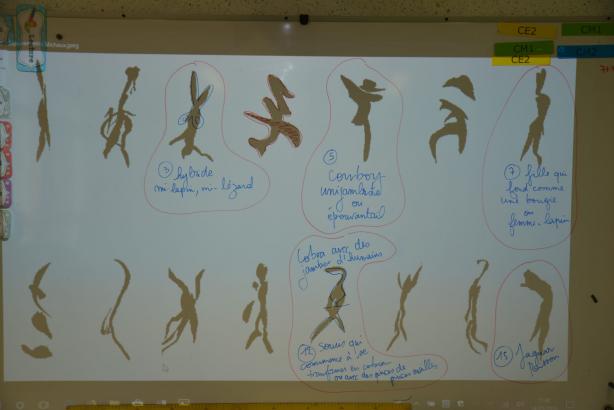 CE2
CM1
CM1
CM2
CE2
Lecture
Michaux.jpeg
③ hybride
mi-lapin, mi-lézard
⑤
Cowboy
unijambiste
ou
épouvantail
⑦ fille qui
fond comme
une bougie
ou
femme-lapin
Cobra avec des
jambes d'humains
⑫ souris qui
commence à se
transformer en cobra
ou avec des pinces de
⑮ Jaguar